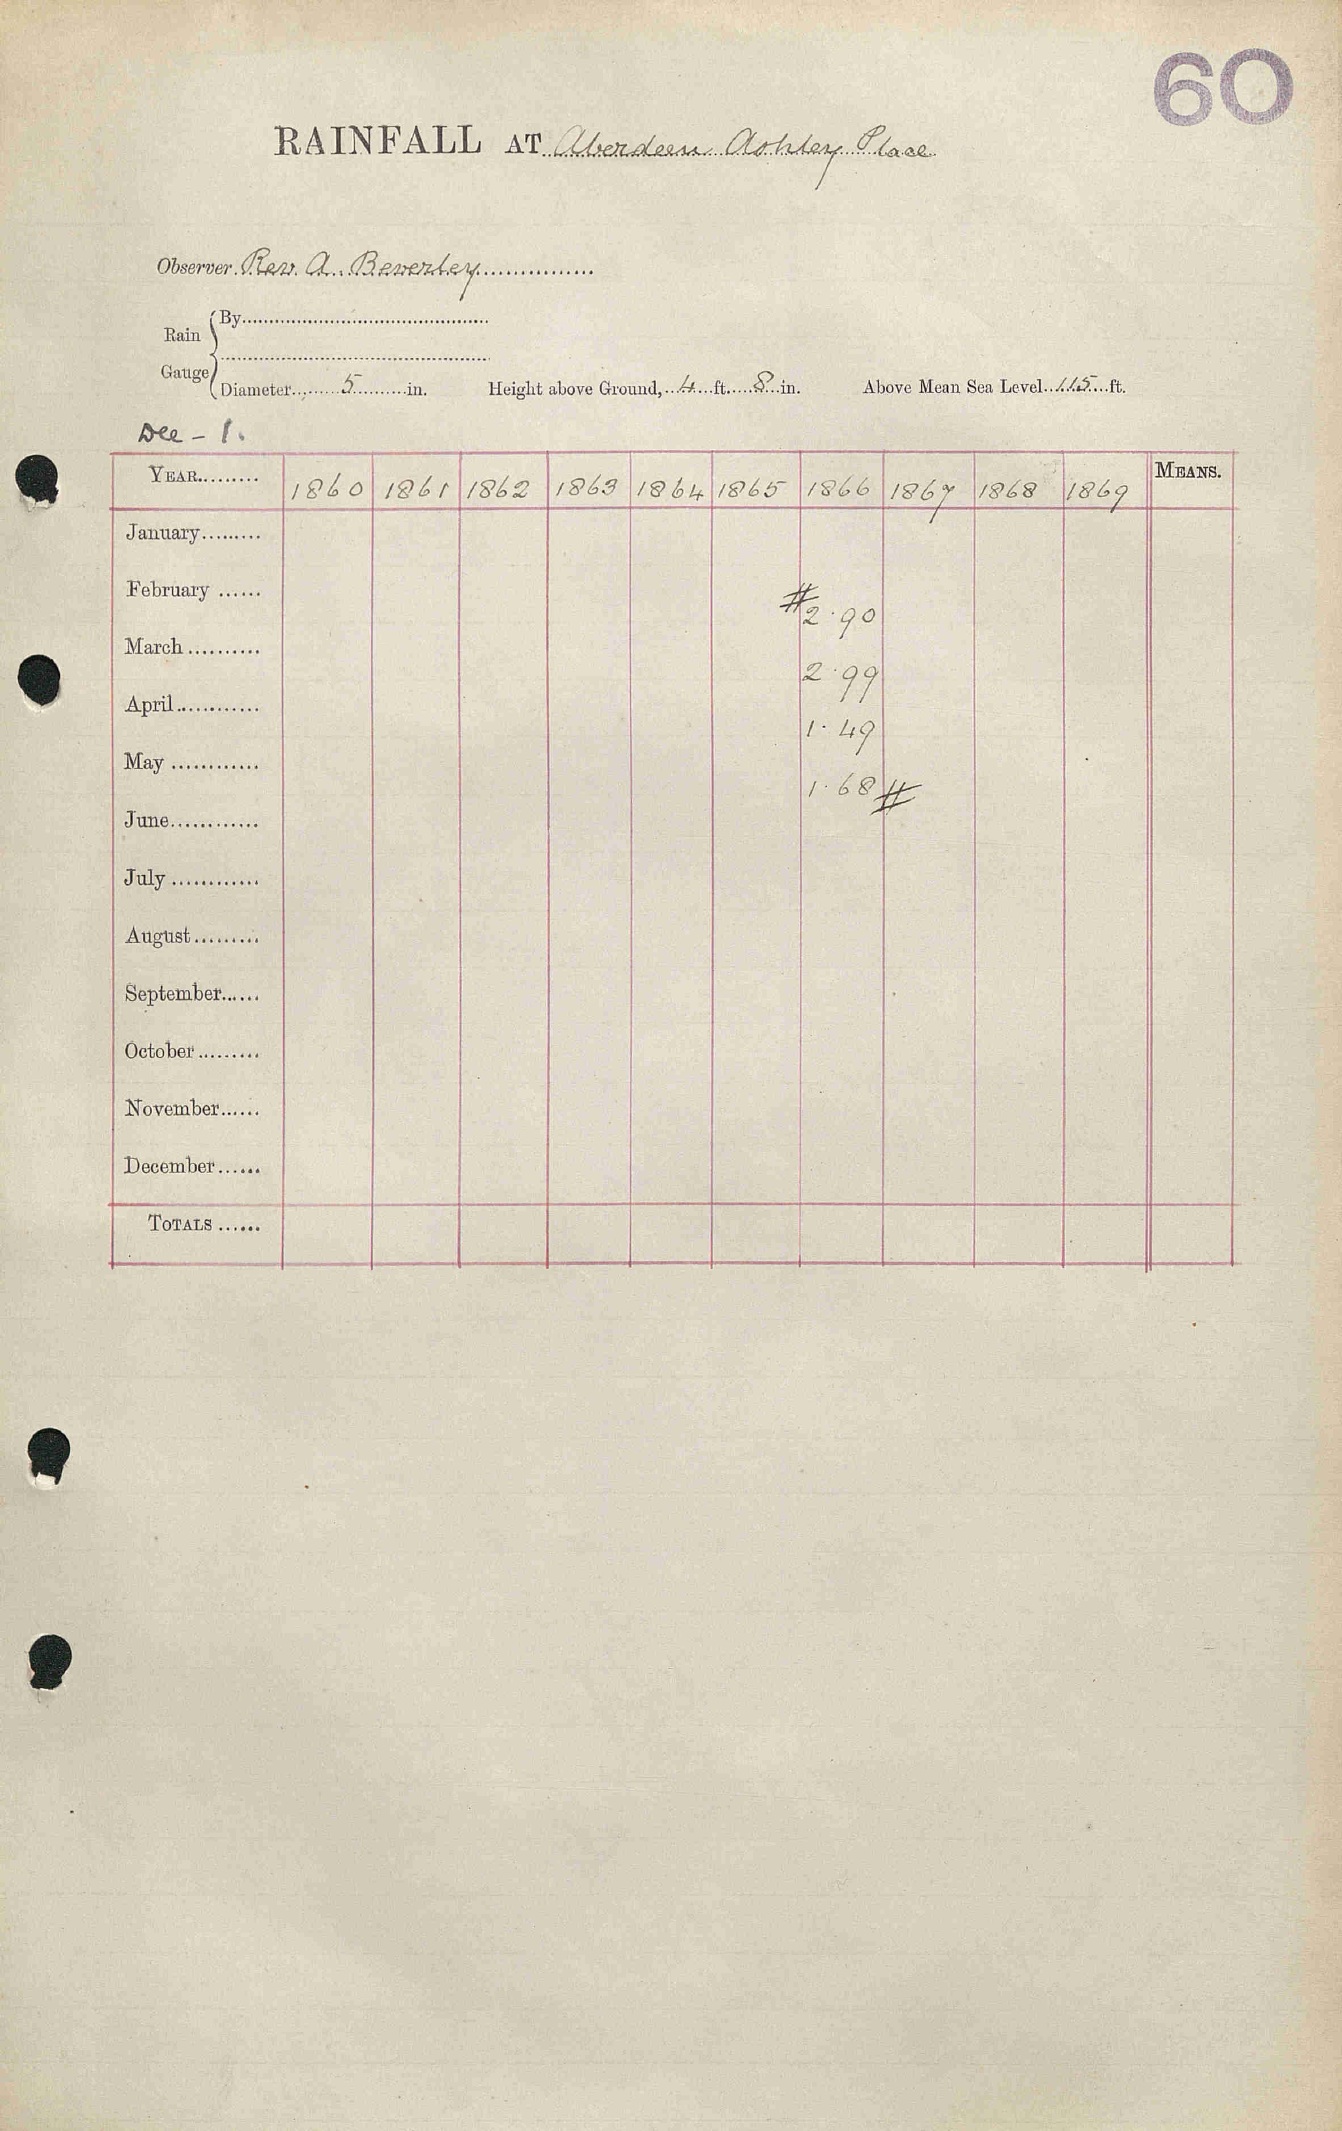 60
RAINFALL AT Aberdeen Ashley Place
Observer Rev. A. Beverley
Rain Gauge
By
Diameter 5 in. Height above Ground, 4 ft. 8 in. Above Mean Sea Level 115 ft.
Dee - 1.
YEAR 1860 1861 1862 1863 1864 1865 1866 1867 1868 1869 MEANS.
January
February # 2.90
March 2.99
April 1.49
May 1.68 #
June
July
August
September
October
November
December
TOTALS